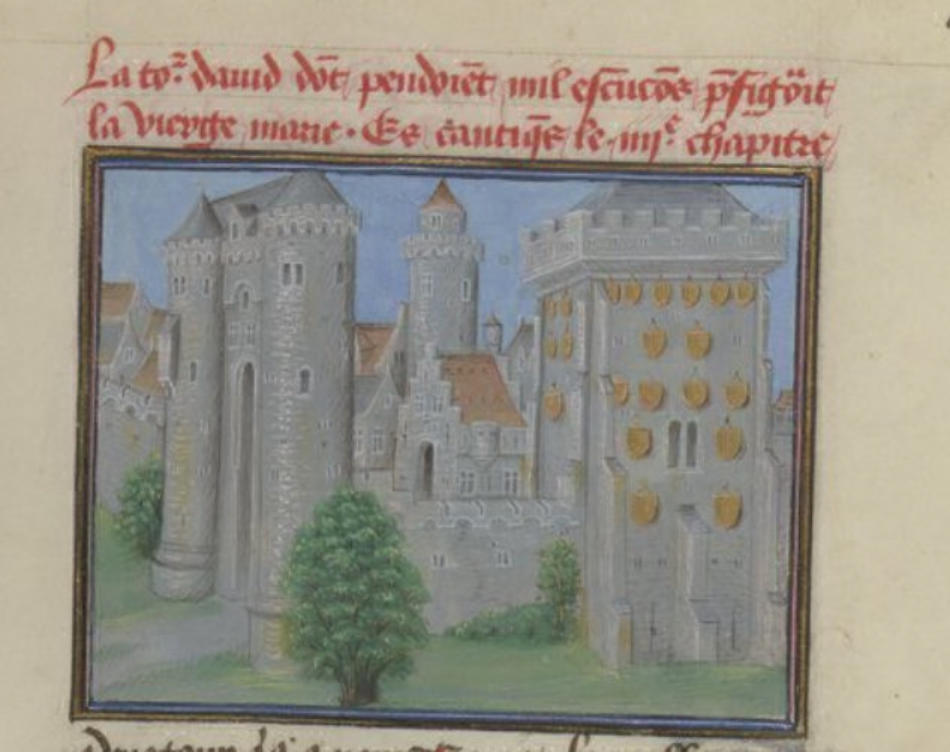 La to.ᷣ dauid dōt pendoiēt mil escucōs p̄figͦit
la vierge marie . Es cantiq̄s le .iiij.ᵉ chapitre